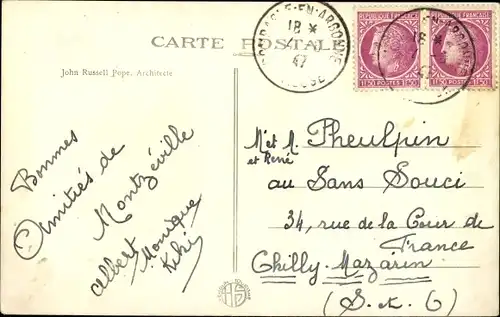 CARTE POSTALE
John Russell Pope, Architecte
18 *
47
MEUSE
REPUBLIQUE FRANÇAISE
1F50
REPUBLIQUE FRANÇAISE
1F50
EN-ARGONNE
18 *
Bonnes
Amitiés de
Montzéville
Albert
Monique
Kiki
Met M. Pheulpin
et René
au Sans Souci
34, rue de la Cour de
France
Chilly-Mazarin
(S. et O)